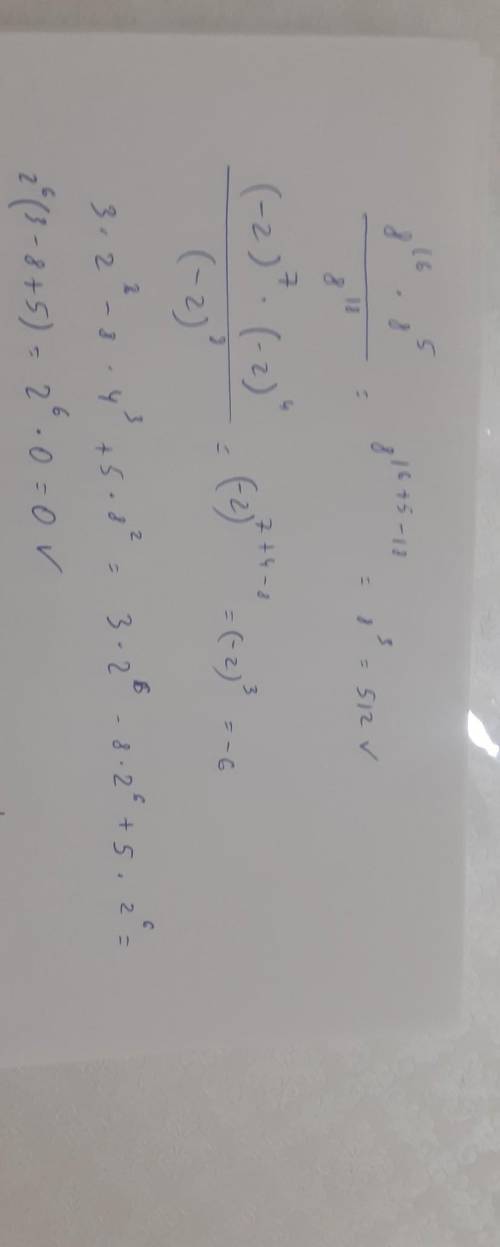 8^16 · 8^5 / 8^18 = 8^16+5-18 = 8^3 = 512 ✓
(-2)^7 · (-2)^4 / (-2)^8 = (-2)^7+4-8 = (-2)^3 = -6
3 · 2^8 - 8 · 4^3 + 5 · 8^2 = 3 · 2^6 - 8 · 2^6 + 5 · 2^6 =
2^6(3 - 8 + 5) = 2^6 · 0 = 0 ✓